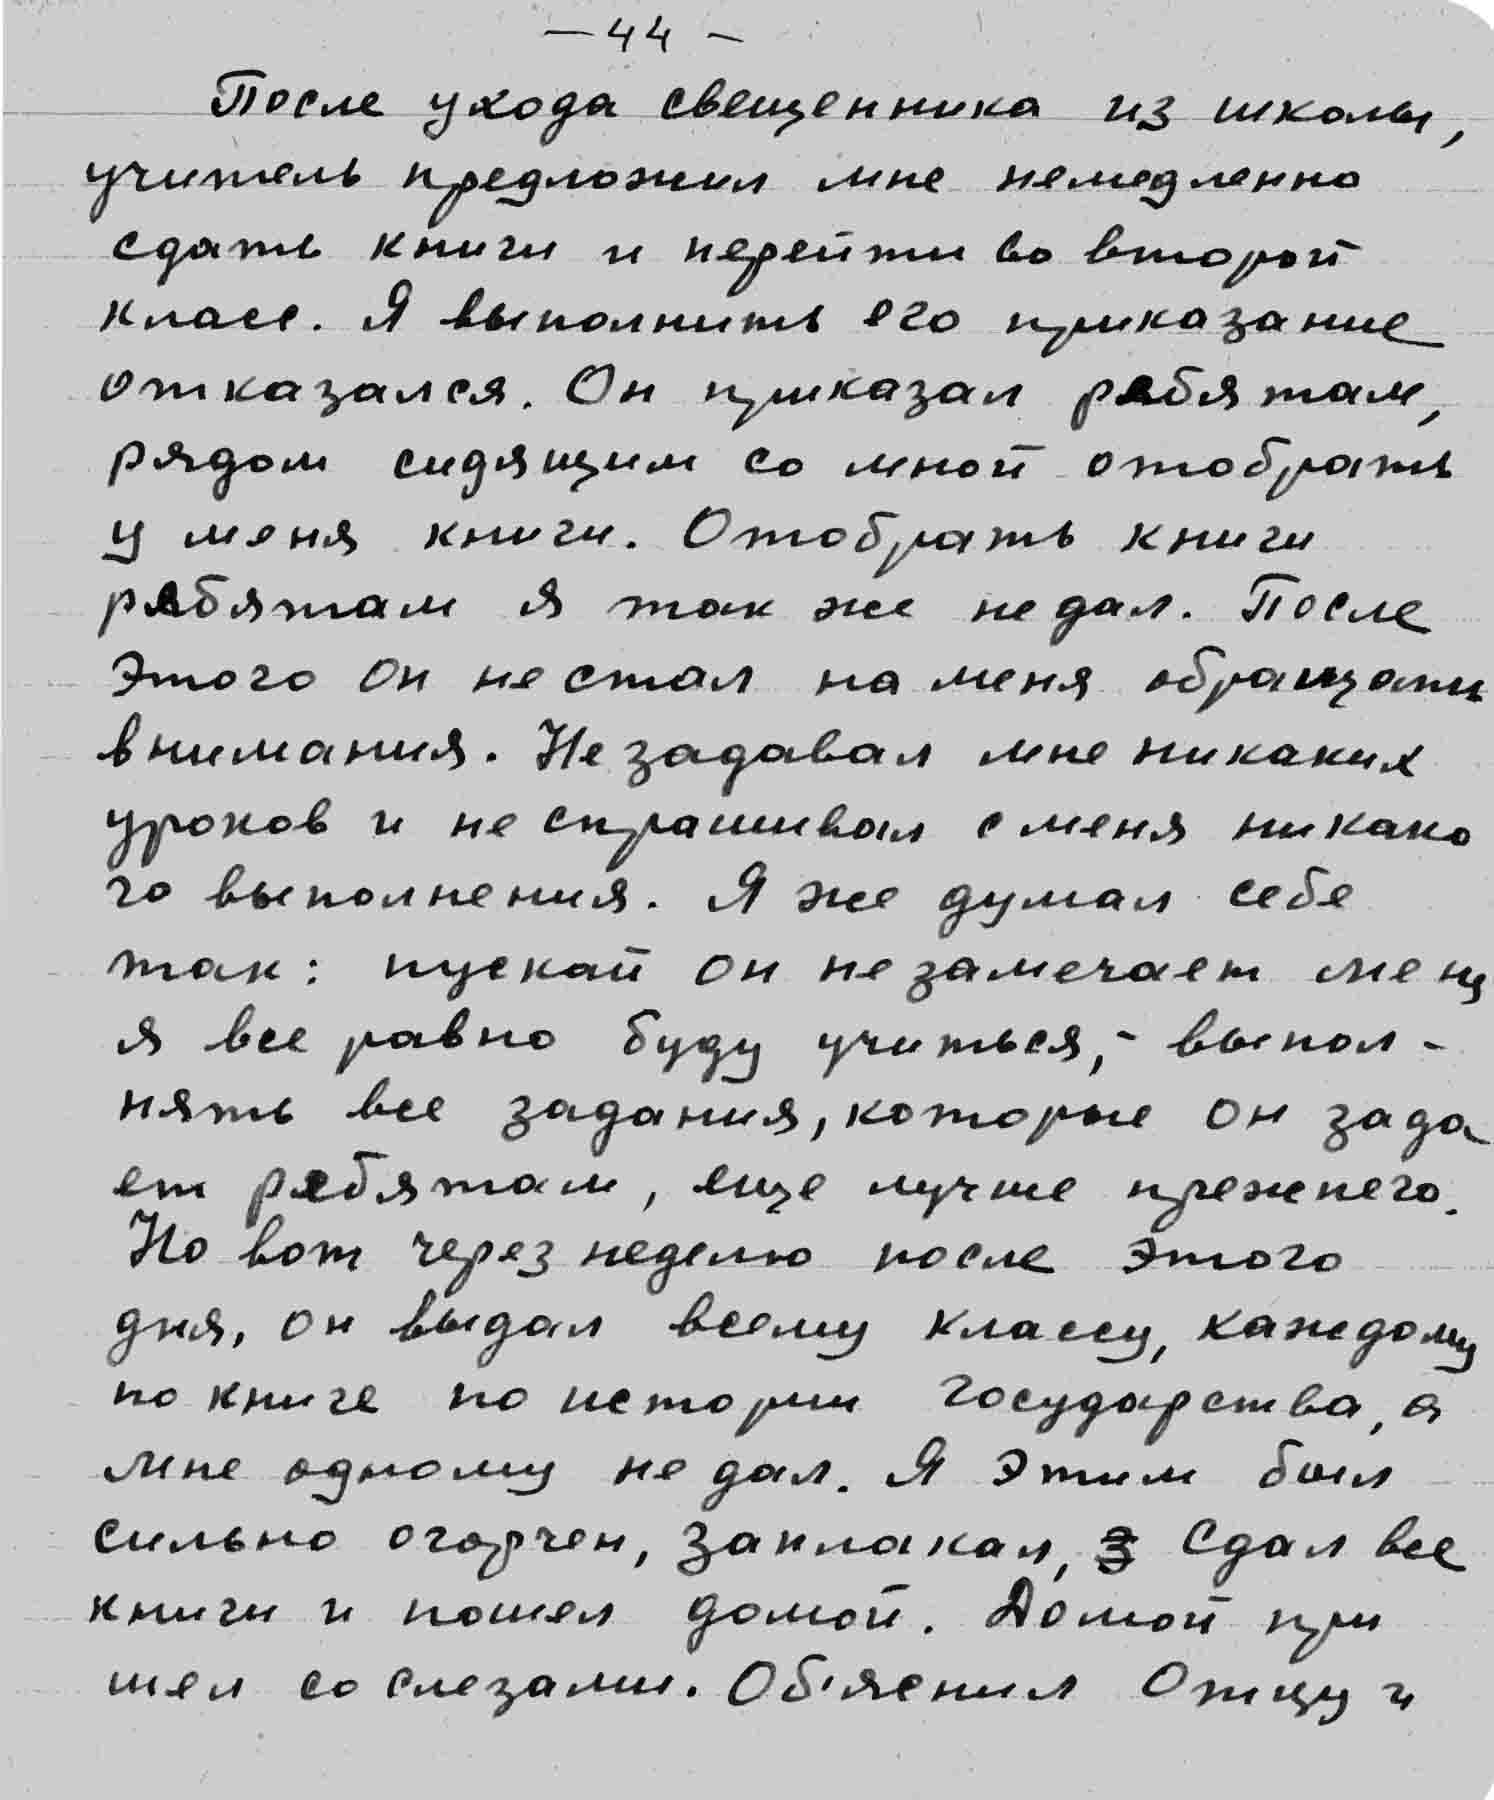 — 44 —
После ухода свещенника из школы,
учитель предложил мне немедленно
сдать книги и перейти во второй
класс. Я выполнить его приказание
отказался. Он приказал ребятам,
рядом сидящим со мной отобрать
у меня книги. Отобрать книги
ребятам я так же не дал. После
этого он не стал на меня обращать
внимания. Не задавал мне никаких
уроков и не спрашивал с меня никако
го выполнения. Я же думал себе
так: пускай он не замечает меня
я все равно буду учиться, - выпол-
нять все задания, которые он зада
ет ребятам, еще лучше прежнего.
Но вот через неделю после этого
дня, он выдал всему классу, каждому
по книге по истории государства, а
мне одному не дал. Я этим был
сильно огорчен, заплакал, сдал все
книги и пошел домой. Домой при
шел со слезами. Об'яснил Отцу и